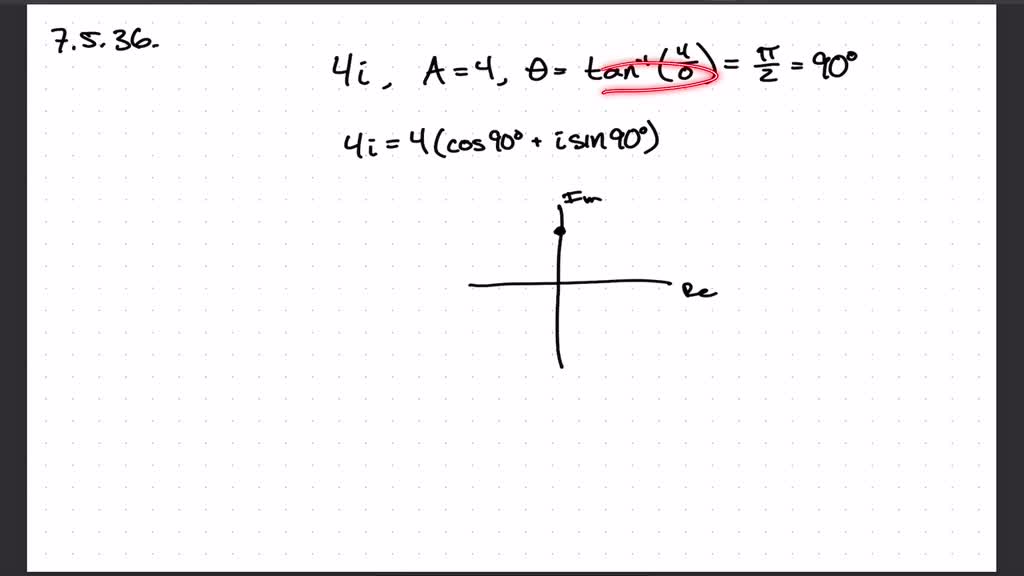 7.5.36.
4i, A = 4, θ = tan⁻¹(4/0) = π/2 = 90°
4i = 4(cos90° + i sin90°)
Im
Re